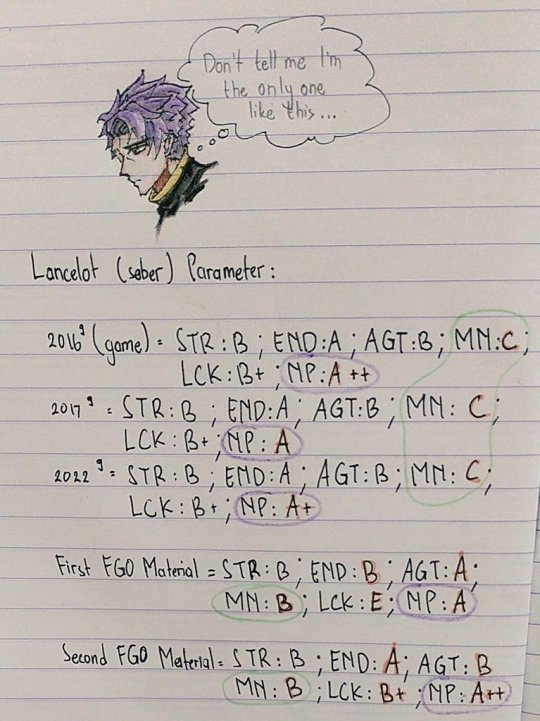 Don't tell me I'm
the only one
like this...
Lancelot (saber) Parameter:
2016 (game) = STR: B ; END: A ; AGT: B; MN: C;
LCK: B+ ; NP: A ++
2017 = STR: B ; END: A ; AGT: B ; MN: C;
LCK: B+ ; NP: A
2022 = STR: B ; END: A ; AGT: B ; MN: C;
LCK: B+ ; NP: A+
First FGO Material = STR: B ; END: B ; AGT: A;
MN: B ; LCK: E ; NP: A
Second FGO Material = STR: B ; END: A ; AGT: B
MN: B ; LCK: B+ ; NP: A++